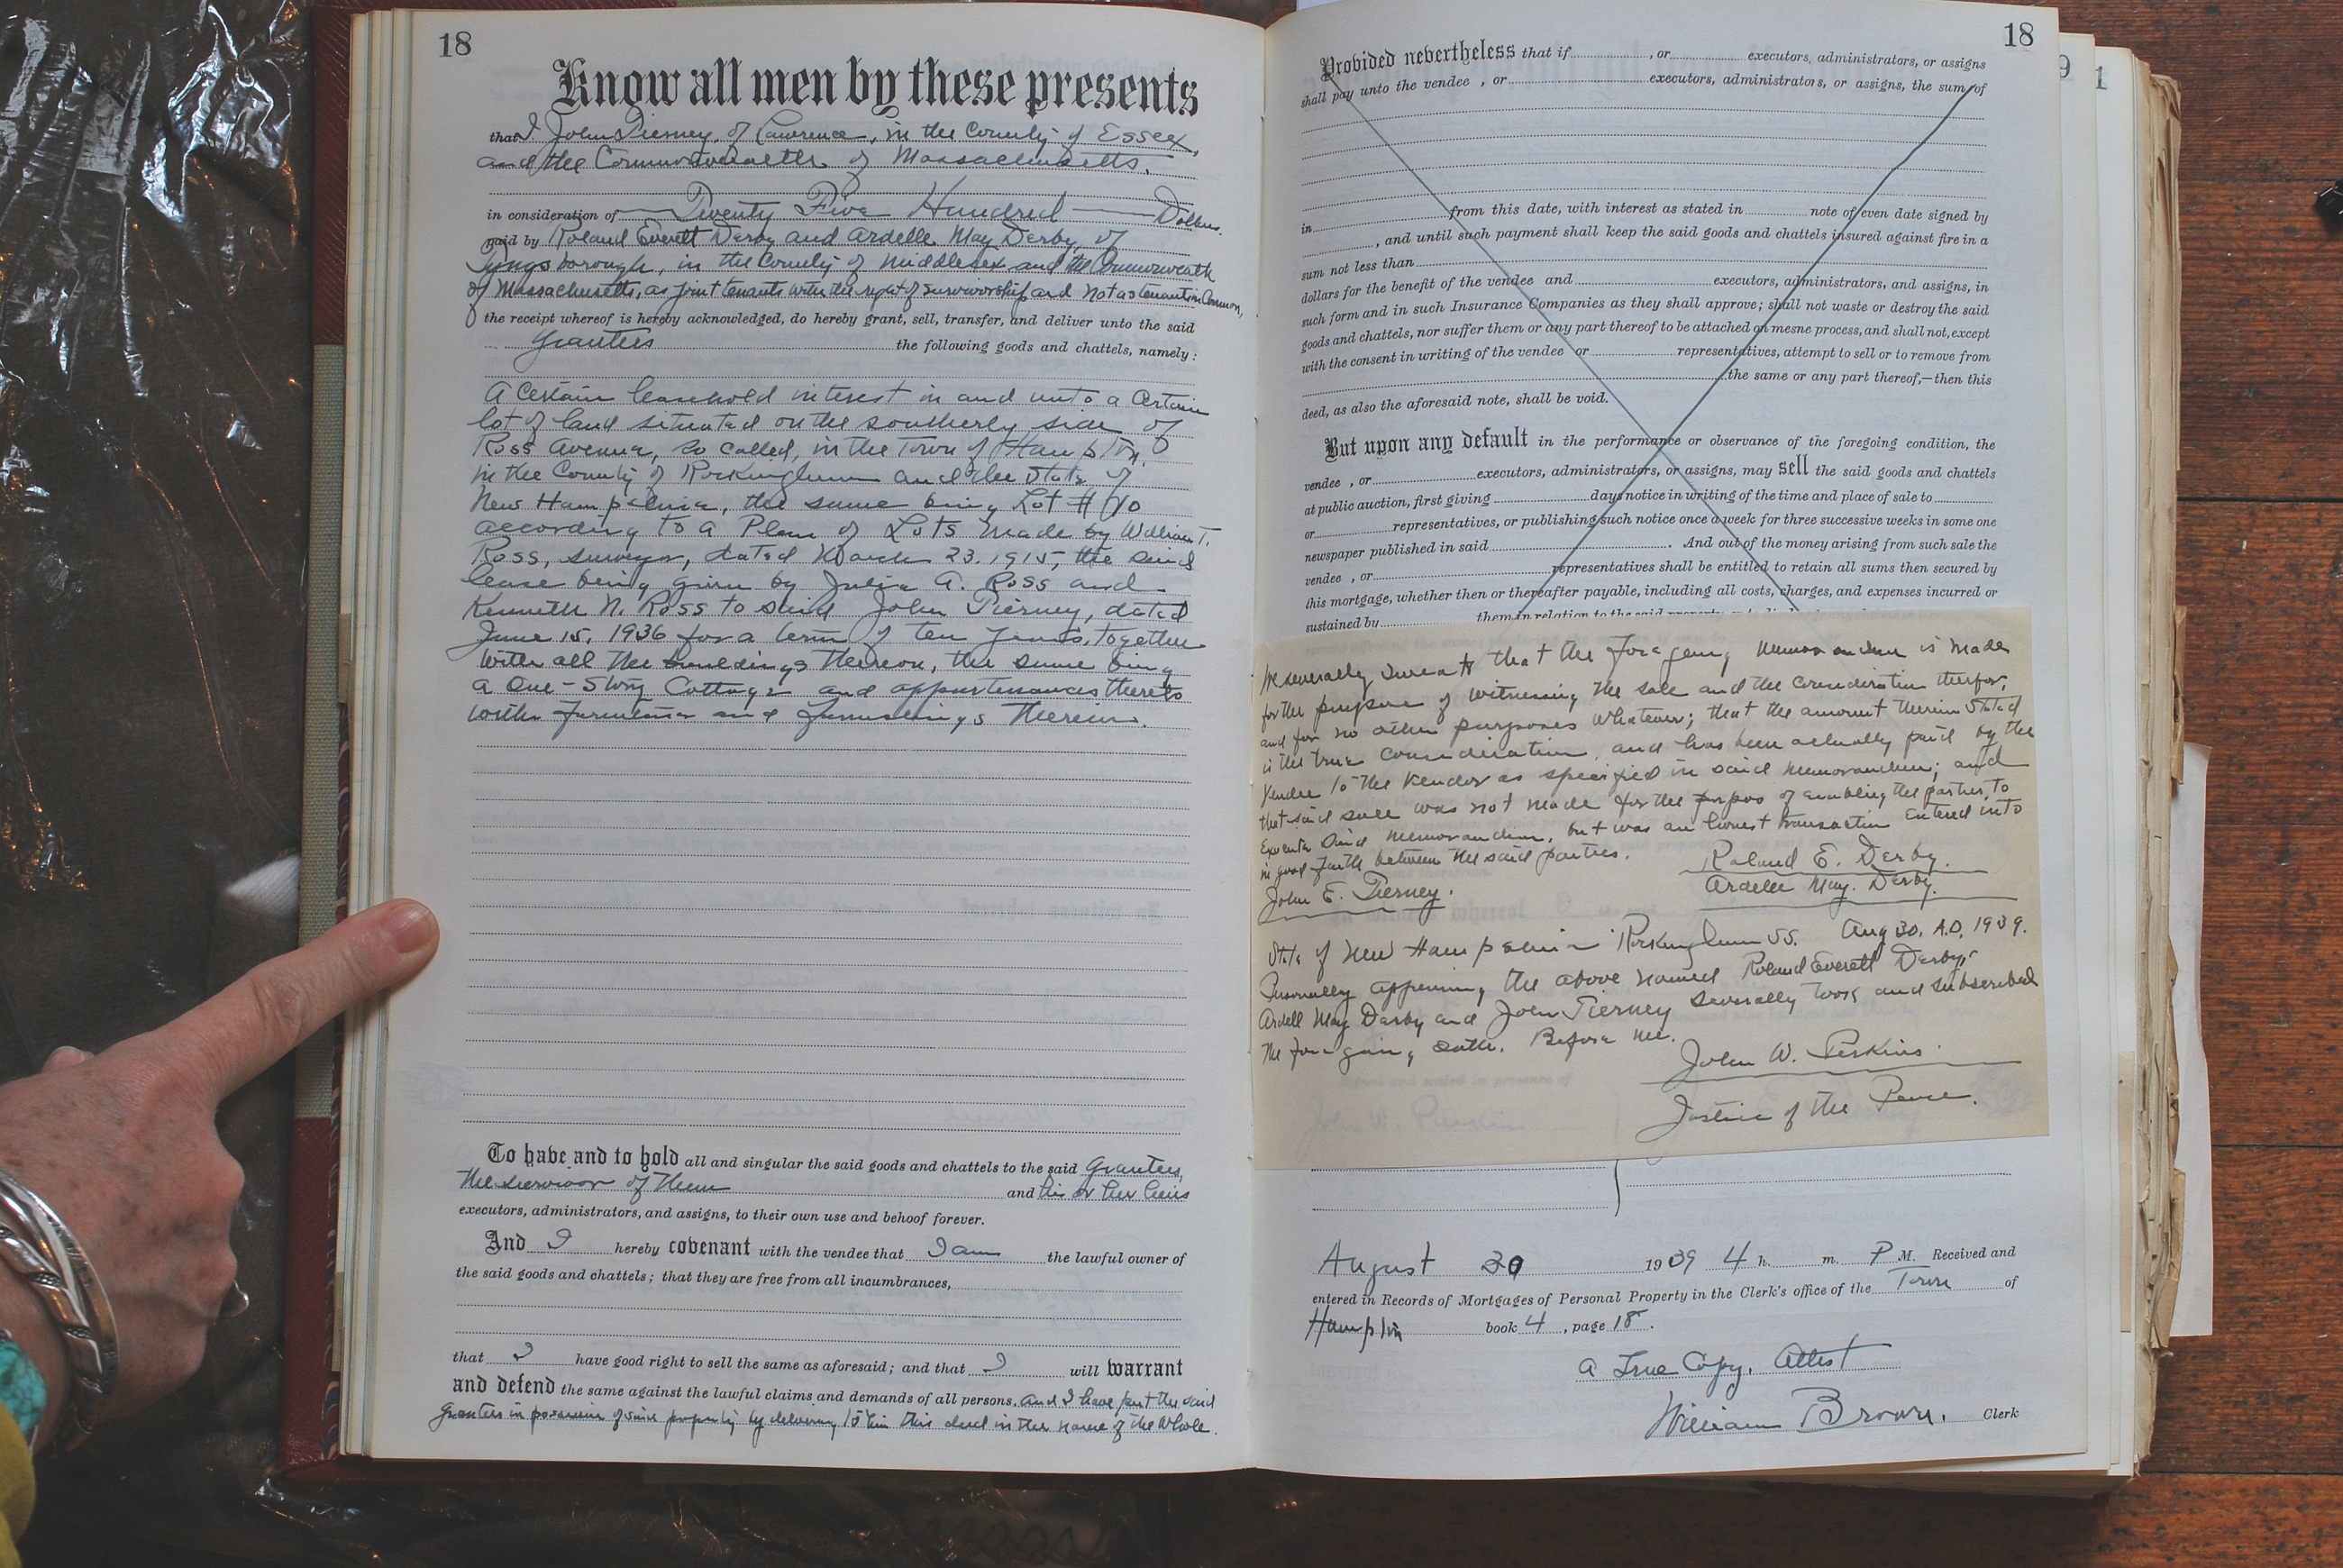 18
Know all men by these presents
that I, John Tierney, of Lawrence, in the County of Essex,
and the Commonwealth of Massachusetts.
in consideration of Twenty Five Hundred Dollars.
paid by Roland Everett Derby and Ardelle May Derby, of
Tyngsborough, in the County of Middlesex and the Commonweath
of Massachusetts, as joint tenants with the right of survivorship and not as tenants in Common,
the receipt whereof is hereby acknowledged, do hereby grant, sell, transfer, and deliver unto the said
Grantees the following goods and chattels, namely:
A Certain leasehold interest in and unto a Certain
lot of land situated on the southerly side of
Ross Avenue, so called, in the Town of Hampton,
in the County of Rockingham and the State of
New Hampshire, the same being Lot #
according to a Plan of Lots made by William T.
Ross, surveyor, dated March 23, 1915, the said
lease being given by Julia A. Ross and
Kenneth N. Ross to said John Tierney, dated
June 15, 1936 for a term of ten years, together
with all the buildings thereon, the same being
a One-Story Cottage and appurtenances thereto
with furniture and furnishings therein.
To have and to hold all and singular the said goods and chattels to the said Grantees,
the survivor of them and his or her heirs
executors, administrators, and assigns, to their own use and behoof forever.
And I hereby covenant with the vendee that I am the lawful owner of
the said goods and chattels; that they are free from all incumbrances,
that I have good right to sell the same as aforesaid; and that I will warrant
and defend the same against the lawful claims and demands of all persons. and I have put the said
Grantees in possession of said property by delivering to him this deed in the name of the whole.
18
Provided nevertheless that if , or executors, administrators, or assigns
shall pay unto the vendee , or executors, administrators, or assigns, the sum of
in from this date, with interest as stated in note of even date signed by
, and until such payment shall keep the said goods and chattels insured against fire in a
sum not less than
dollars for the benefit of the vendee and executors, administrators, and assigns, in
such form and in such Insurance Companies as they shall approve; shall not waste or destroy the said
goods and chattels, nor suffer them or any part thereof to be attached on mesne process, and shall not, except
with the consent in writing of the vendee or representatives, attempt to sell or to remove from
the same or any part thereof,—then this
deed, as also the aforesaid note, shall be void.
But upon any default in the performance or observance of the foregoing condition, the
vendee , or executors, administrators, or assigns, may sell the said goods and chattels
at public auction, first giving days notice in writing of the time and place of sale to
or representatives, or publishing such notice once a week for three successive weeks in some one
newspaper published in said . And out of the money arising from such sale the
vendee , or representatives shall be entitled to retain all sums then secured by
this mortgage, whether then or thereafter payable, including all costs, charges, and expenses incurred or
sustained by them in relation to the said property
We severally swear that the foregoing memorandum is made
for the purpose of witnessing the sale and the consideration therfor,
and for no other purposes whatever; that the amount therein Stated
is the true consideration, and has been actually paid by the
Vendee to the Vendor as specified in said memorandum; and
that said sale was not made for the purpos of enabling the parties, to
Execute Said memorandum, but was an honest transaction Entered into
in good faith between the said parties.
Roland E. Derby.
John E. Tierney.
Ardelle May. Derby.
State of New Hampshire Rockingham SS. Aug 30, A.D, 1939.
Personally appearing the above named Roland Everett Derby,
Ardell May Derby and John Tierney severally took and subscribed
the foregoing oath. Before me.
John W. Perkins
Justice of the Peace.
August 30 1939 4 h. m. P M. Received and
entered in Records of Mortgages of Personal Property in the Clerk's office of the Town of
Hampton book 4, page 18.
A True Copy, Attest
William Brown. Clerk